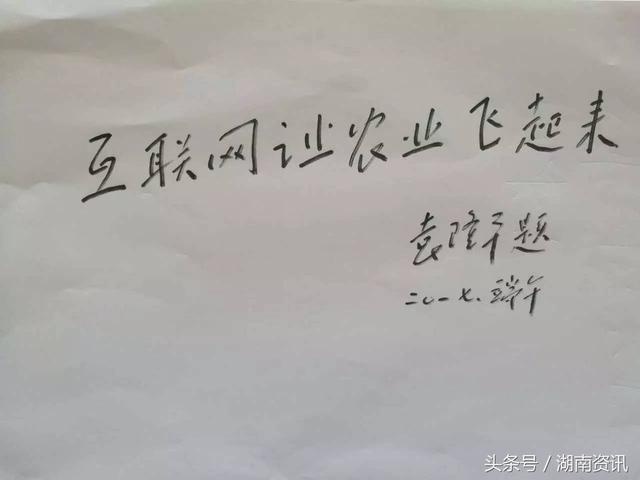 互联网让农业飞起来
袁隆平题
二〇一七.端午
头条号／湖南资讯